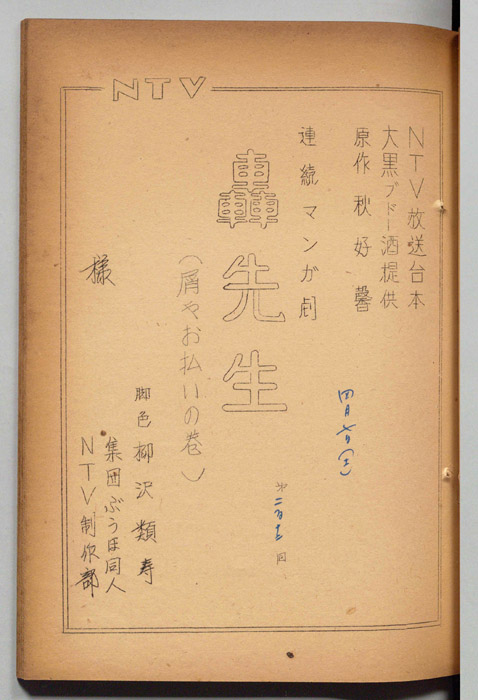 NTV
NTV放送台本
大黒ブドー酒提供
原作 秋好馨
連続マンガ劇
轟先生
（屑やお払いの巻）
四月七日（土）
脚色 柳沢類寿
集団ぶうほ同人
NTV制作部
様